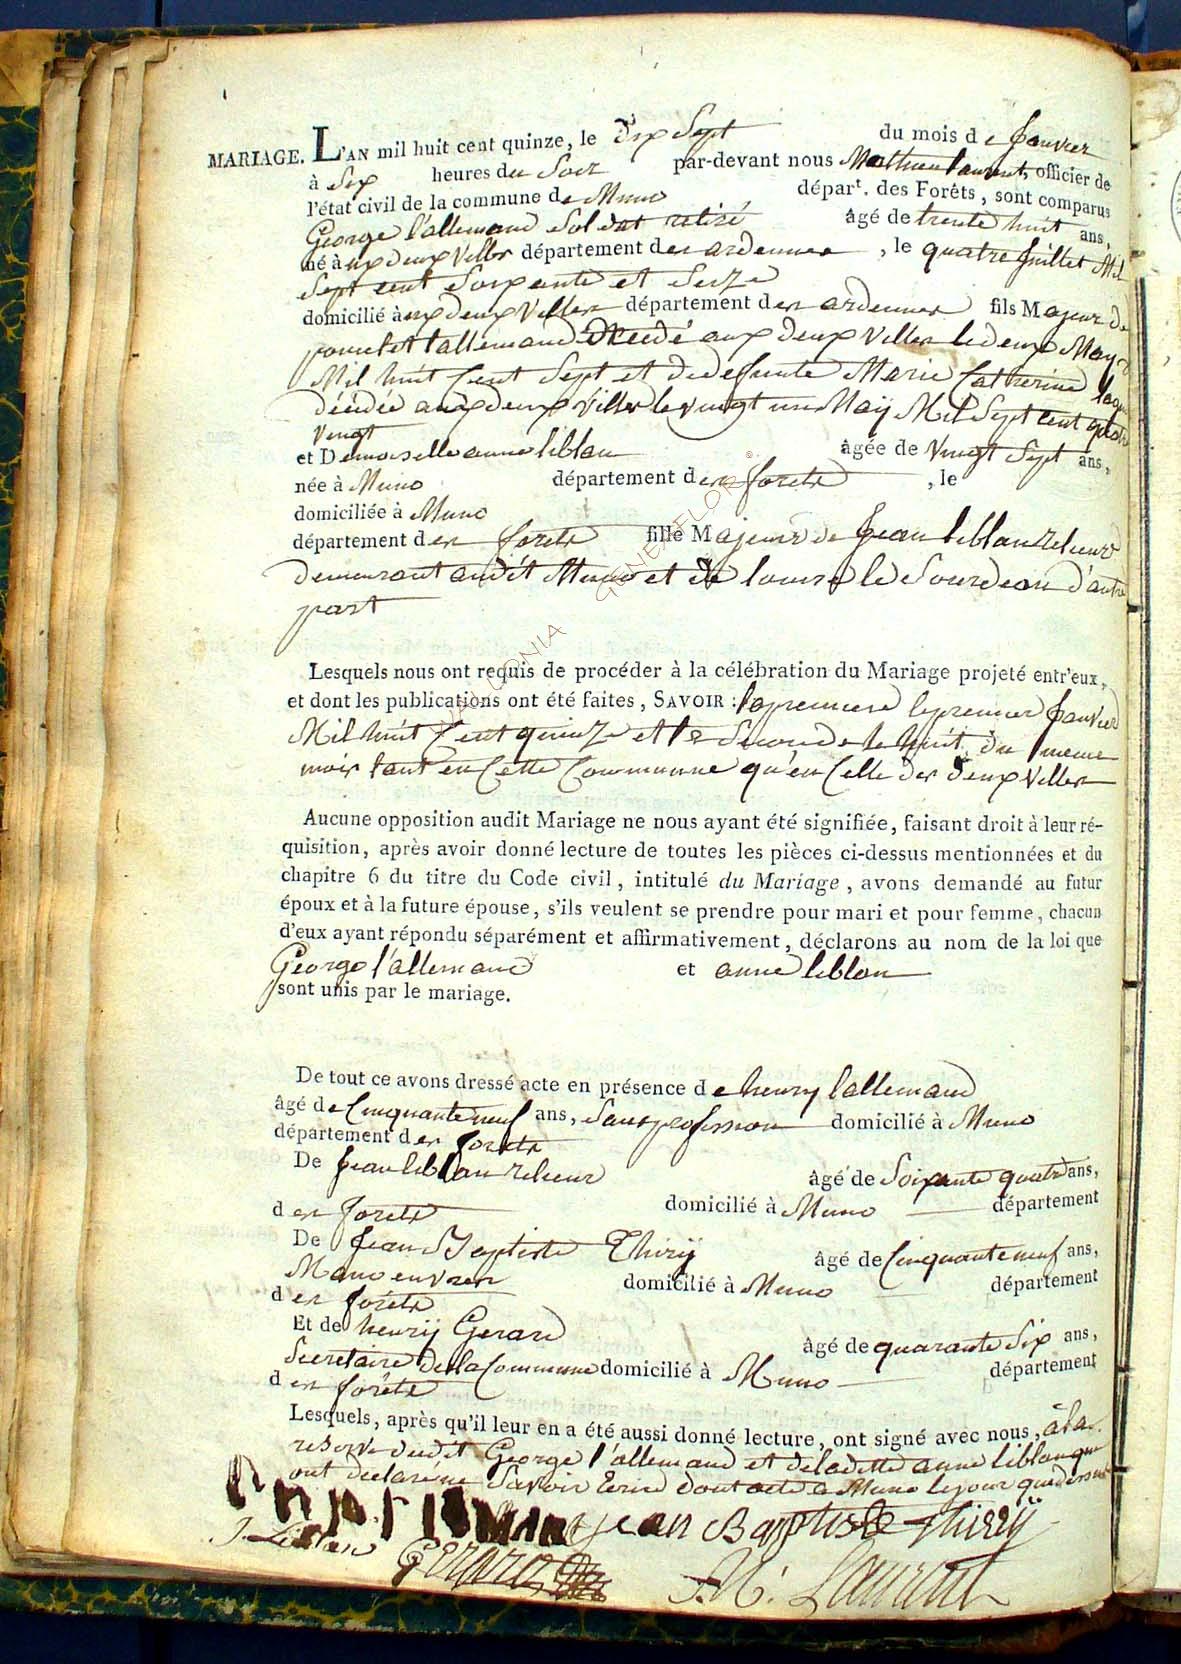 MARIAGE. L'AN mil huit cent quinze, le dix Sept du mois de Janvier
à Six heures du Soir par-devant nous Mathieu laurent, officier de
l'état civil de la commune de Muno départ. des Forêts, sont comparus
George l'allemand Soldat retiré âgé de trente huit ans,
né à ux deux Villes département des ardennes, le quatre Juillet Mil
Sept cent Soixante et Seize
domicilié aux deux Villes département des ardennes fils Majeur de
lallemand décédé aux deux Villes le deux May
Mil huit Cent Sept et de defunte Marie Catherine
décédée aux deux Villes le vingt un Maÿ Mil Sept cent quatre
Vingt
et Demoiselle anne leblan âgée de Vingt Sept ans,
née à Muno département des forets, le
domiciliée à Muno
département des forets fille Majeure de Jean leblan relieur
demeurant audit Muno et de louise le Sourdeau d'autre
part
Lesquels nous ont requis de procéder à la célébration du Mariage projeté entr'eux,
et dont les publications ont été faites, SAVOIR : la premiere le premier Janvier
Mil huit Cent quinze et la Seconde le huit du meme
mois tant en Cette Commune qu'en Celle des deux Villes
Aucune opposition audit Mariage ne nous ayant été signifiée, faisant droit à leur ré-
quisition, après avoir donné lecture de toutes les pièces ci-dessus mentionnées et du
chapitre 6 du titre du Code civil, intitulé du Mariage, avons demandé au futur
époux et à la future épouse, s'ils veulent se prendre pour mari et pour femme, chacun
d'eux ayant répondu séparément et affirmativement, déclarons au nom de la loi que
George l'allemand et anne leblan
sont unis par le mariage.
De tout ce avons dressé acte en présence de henry lallemand
âgé de Cinquante neuf ans, Sans profession domicilié à Muno
département des forets
De Jean leblan relieur âgé de Soixante quatre ans,
domicilié à Muno département
des forets
De Jean Baptiste Thirÿ âgé de Cinquante neuf ans,
Manoeuvrer domicilié à Muno département
des forets
Et de henrij Gerard âgé de quarante Six ans,
Secretaire de la Commune domicilié à Muno département
des forets
Lesquels, après qu'il leur en a été aussi donné lecture, ont signé avec nous, à la
reserve dudit George l'allemand et de ladette anne leblan qui
ont declaré ne Savoir Ecrire dont acte a Muno le jour que dessus
jean Baptiste thirÿ
J Leblan Gerard M. Laurent
WALLONIA
GENEAFLOR ©